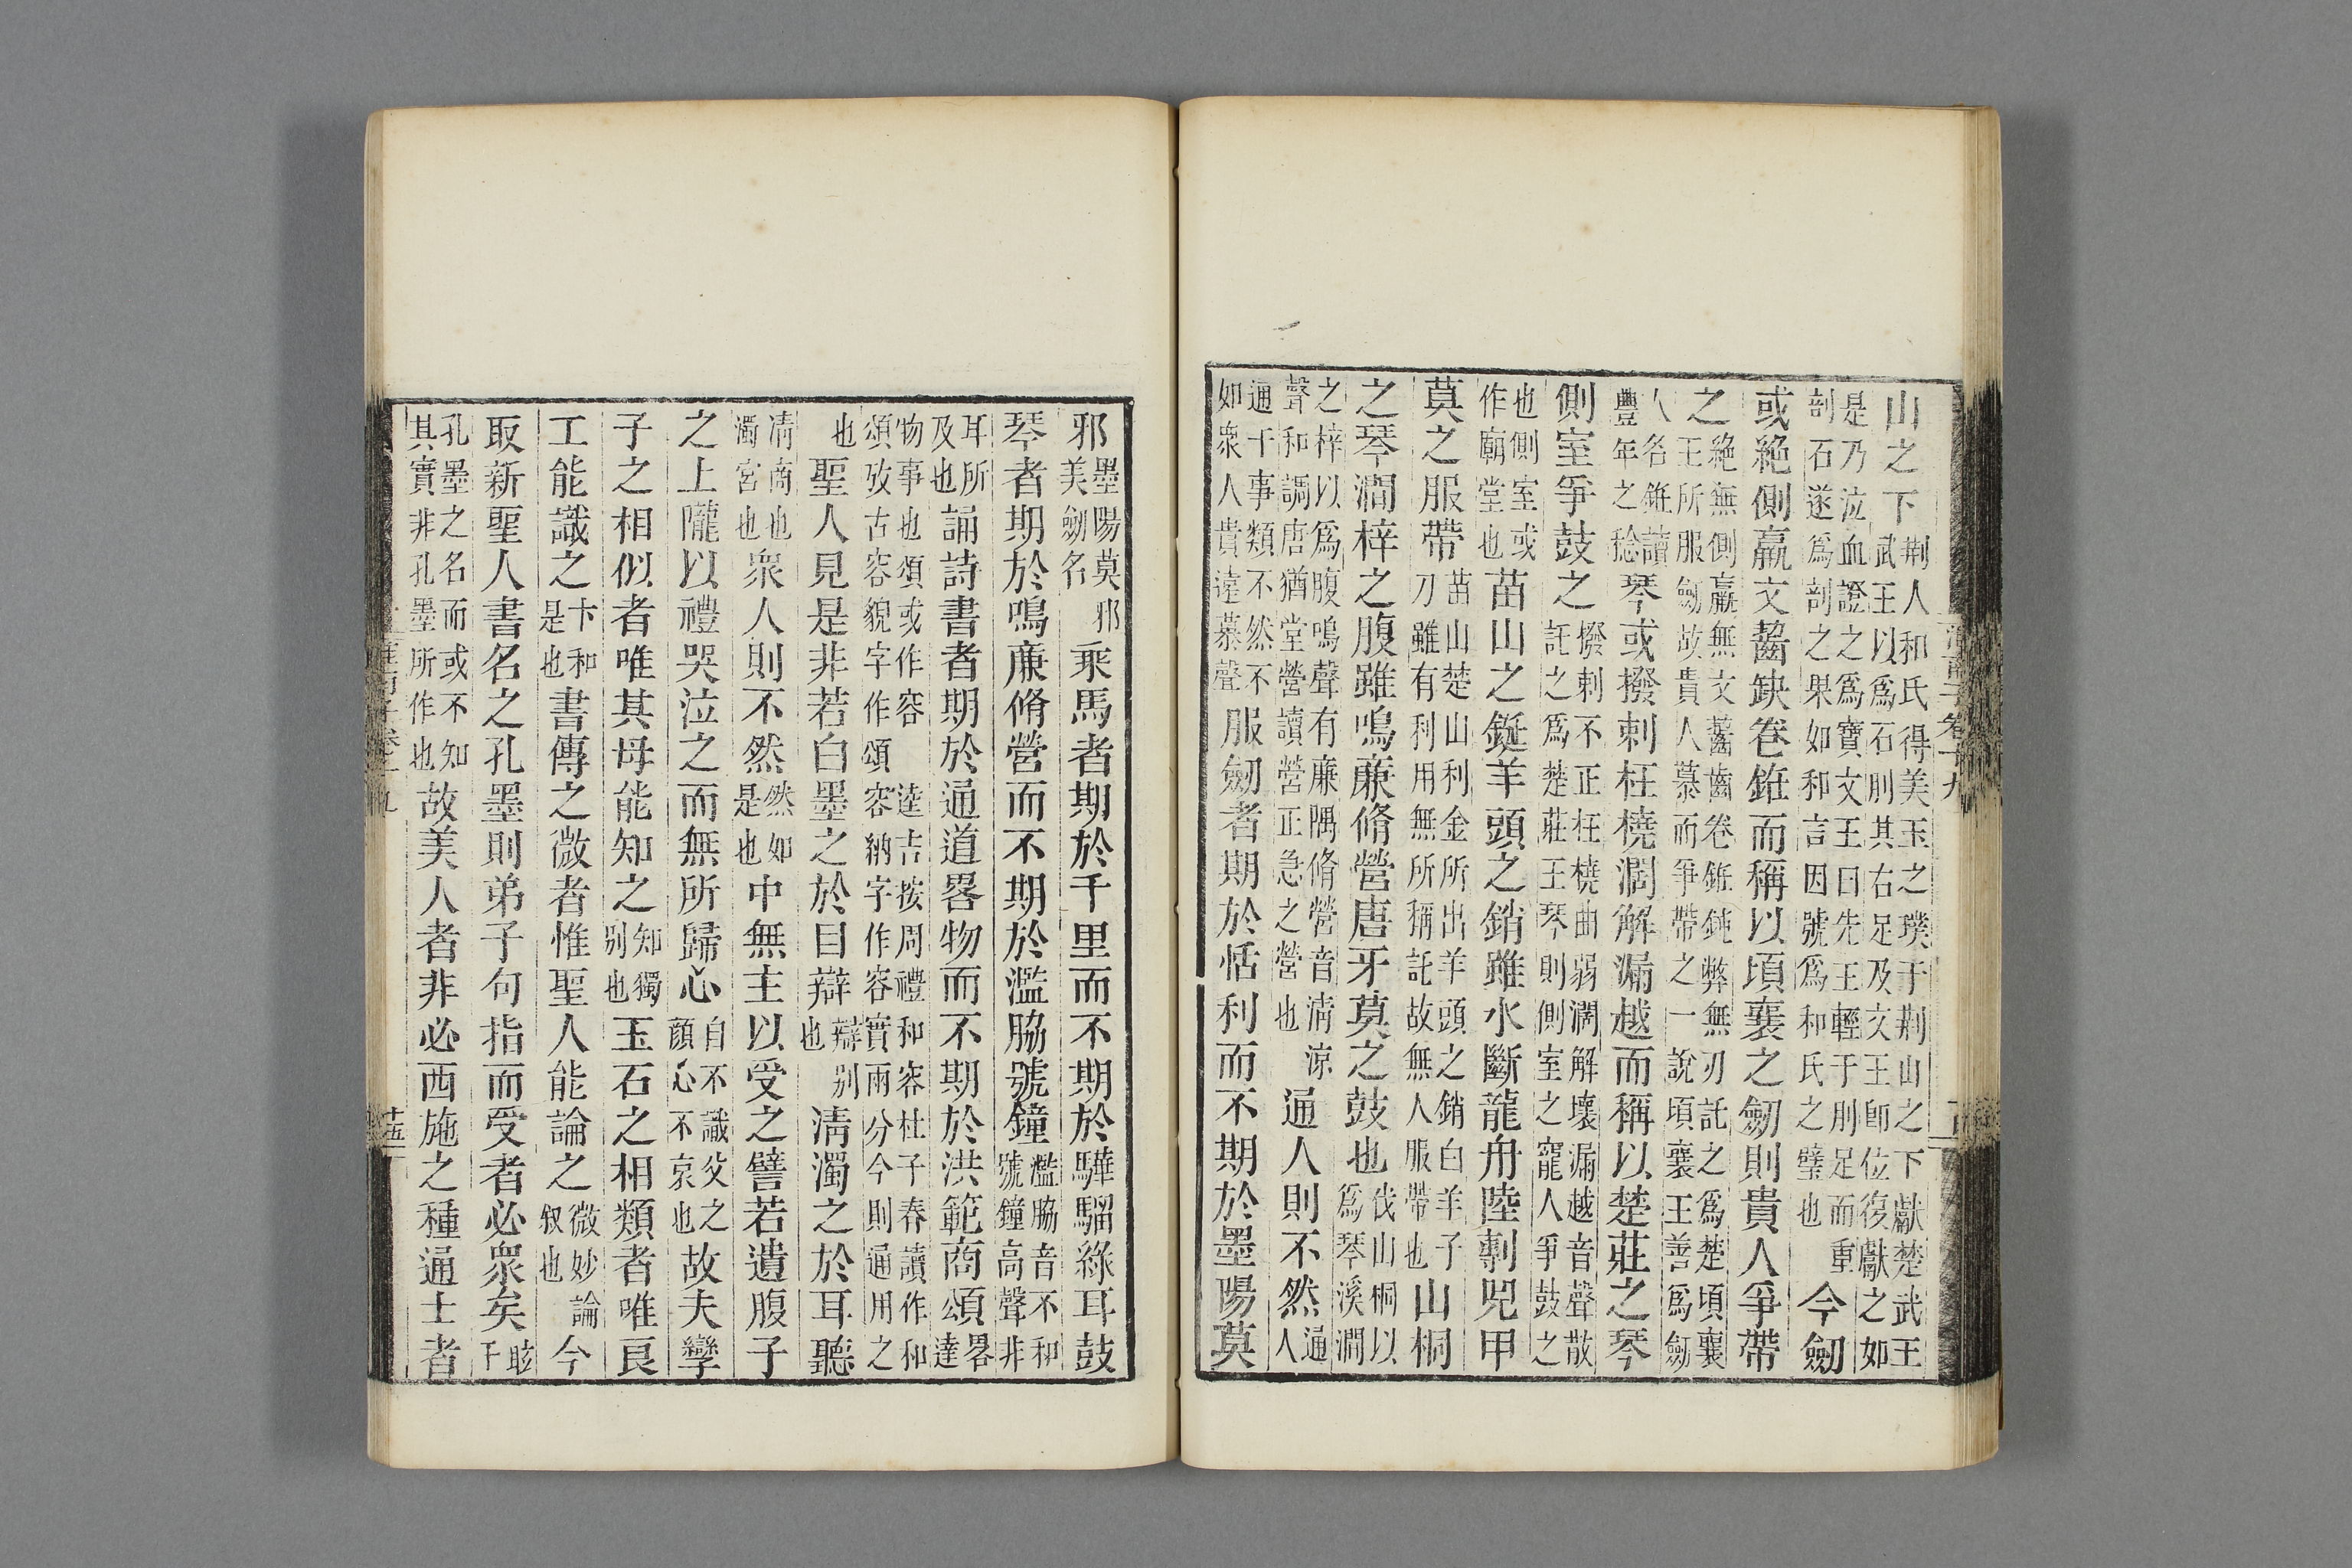 淮南子卷十九
山之下荆人和氏得美玉之璞于荆山之下獻楚武王武王以爲石刖其右足及文王卽位復獻之如
是乃泣血證之爲寶文王曰先王輕于刖足而重剖石遂爲剖之果如和言因號爲和氏之璧也今劒
或絶側羸文齧缺卷銋而稱以頃襄之劒則貴人爭帶
之絶無側羸無文齧齒卷銋鈍弊無刃託之爲楚頃襄王所服劒故貴人慕而爭帶之一說頃襄王善爲劒
人名銋讀豐年之稔琴或撥剌枉橈濶解漏越而稱以楚莊之琴
側室爭鼓之撥剌不正枉橈曲弱濶解壞漏越音聲散託之爲楚莊王琴則側室之寵人爭鼓之
也側室或作廟堂也苗山之鋋羊頭之銷雖水斷龍舟陸剸兕甲
莫之服帶苗山楚山利金所出羊頭之銷白羊子刀雖有利用無所稱託故無人服帶也山桐
之琴澗梓之腹雖鳴廉脩營唐牙莫之鼓也伐山桐以爲琴溪澗
之梓以爲腹鳴聲有廉隅脩營音清涼聲和調唐猶堂營讀營正急之營也通人則不然通人
通于事類不然不如衆人貴遠慕聲服劒者期於恬利而不期於墨陽莫
邪墨陽莫邪美劒名乘馬者期於千里而不期於驊騮綠耳鼓
琴者期於鳴廉脩營而不期於濫脇號鐘濫脇音不和號鐘高聲非
耳所及也誦詩書者期於通道畧物而不期於洪範商頌畧達
物事也頌或作容逵吉按周禮和容杜子春讀作和頌攷古容貌字作頌容納字作容實兩分今則通用之
也聖人見是非若白墨之於目辯辯别也淸濁之於耳聽
淸商也濁宮也衆人則不然然如是也中無主以受之譬若遺腹子
之上隴以禮哭泣之而無所歸心自不識父之顔心不哀也故夫孿
子之相似者唯其母能知之知獨别也玉石之相類者唯良
工能識之卞和是也書傳之微者惟聖人能論之微妙論叙也今
取新聖人書名之孔墨則弟子句指而受者必衆矣眩于
孔墨之名而或不知其實非孔墨所作也故美人者非必西施之種通士者
十五